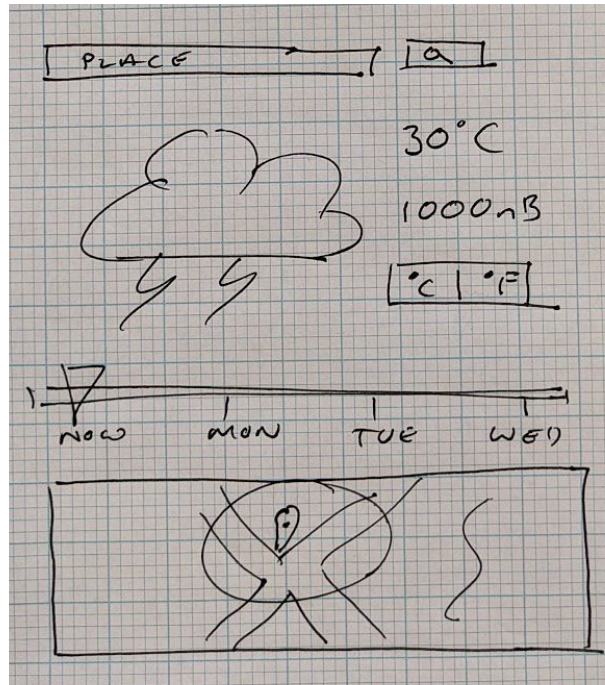 PLACE
30°C
1000mB
°C | °F
NOW MON TUE WED